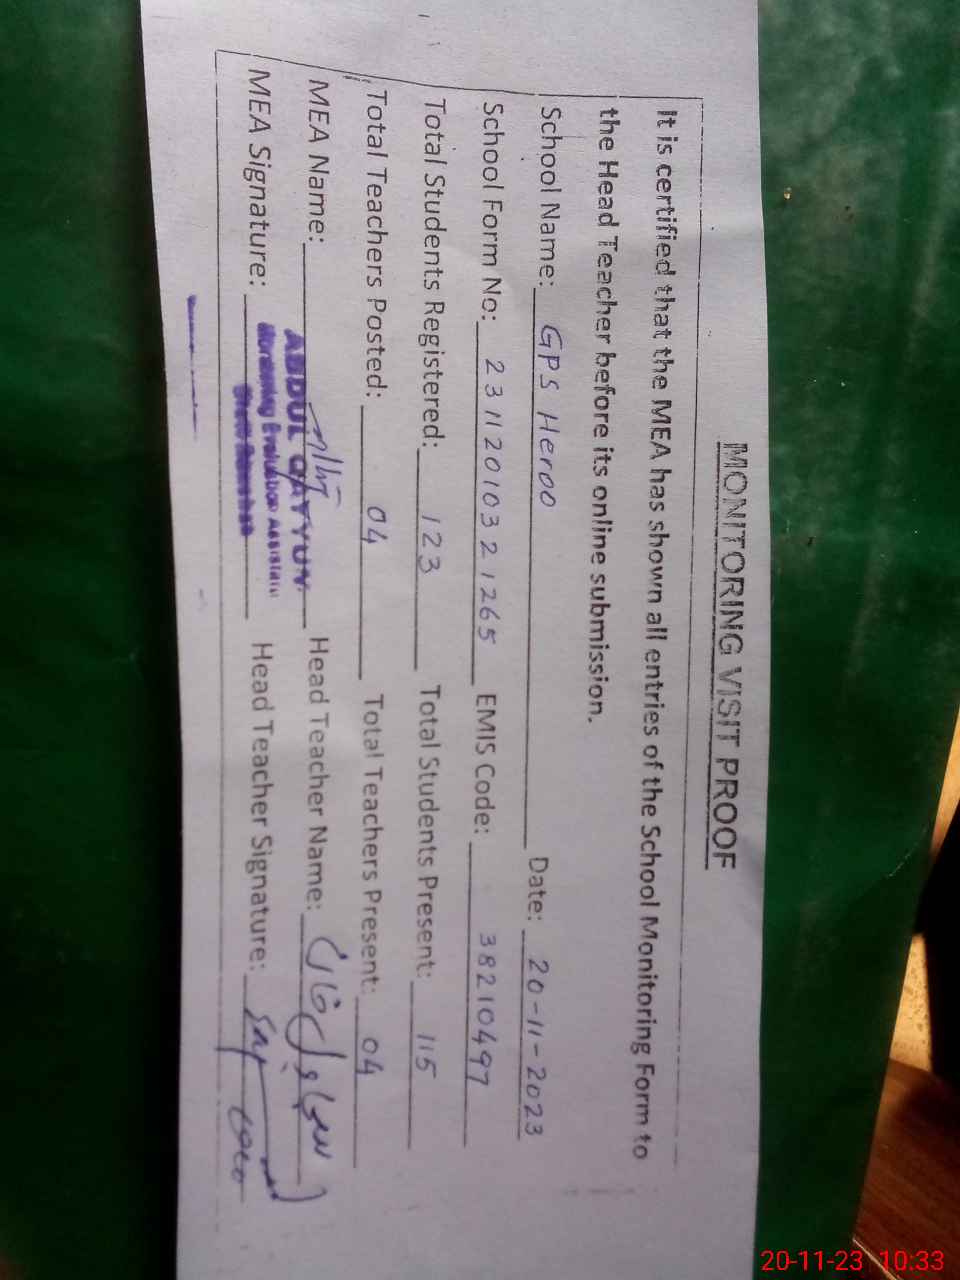 MONITORING VISIT PROOF
It is certified that the MEA has shown all entries of the School Monitoring Form to
the Head Teacher before its online submission.
School Name: GPS Heroo Date: 20-11-2023
School Form No: 23112010321265 EMIS Code: 38210497
Total Students Registered: 123 Total Students Present: 115
Total Teachers Posted: 04 Total Teachers Present: 04
MEA Name: ABDUL QAYYUM Head Teacher Name:
Monitoring Evaluation Assistant
MEA Signature: Head Teacher Signature:
20-11-23 10:33